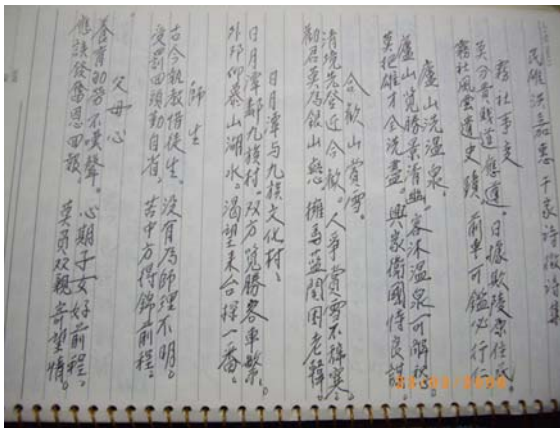 民雄洪嘉惠千家詩徵詩集
霧社事變
莫分貴賤道應遵。日據欺陵原住民。
霧社風雲遺史蹟。前車可鑑必行仁。
廬山洗溫泉。
廬山覽勝景清幽。客沐溫泉可解愁。
莫把雄才全洗盡。興家衛國恃良謀。
合歡山賞雪。
清境先登近合歡。人爭賞雪不辭寒。
勸君莫為銀山戀。擁馬藍關困老韓。
日月潭与九族文化村。
日月潭鄰九族村。双方覽勝客車繁。
外邦仰慕山湖水。渴望来台探一番。
師生
古今執教惜徒生。没有為師理不明。
受割回頭勤自省。苦中方得錦前程。
父母心
養育劬勞不憂聲。心期子女好前程。
應該發奮恩回報。莫負双親寄望情。